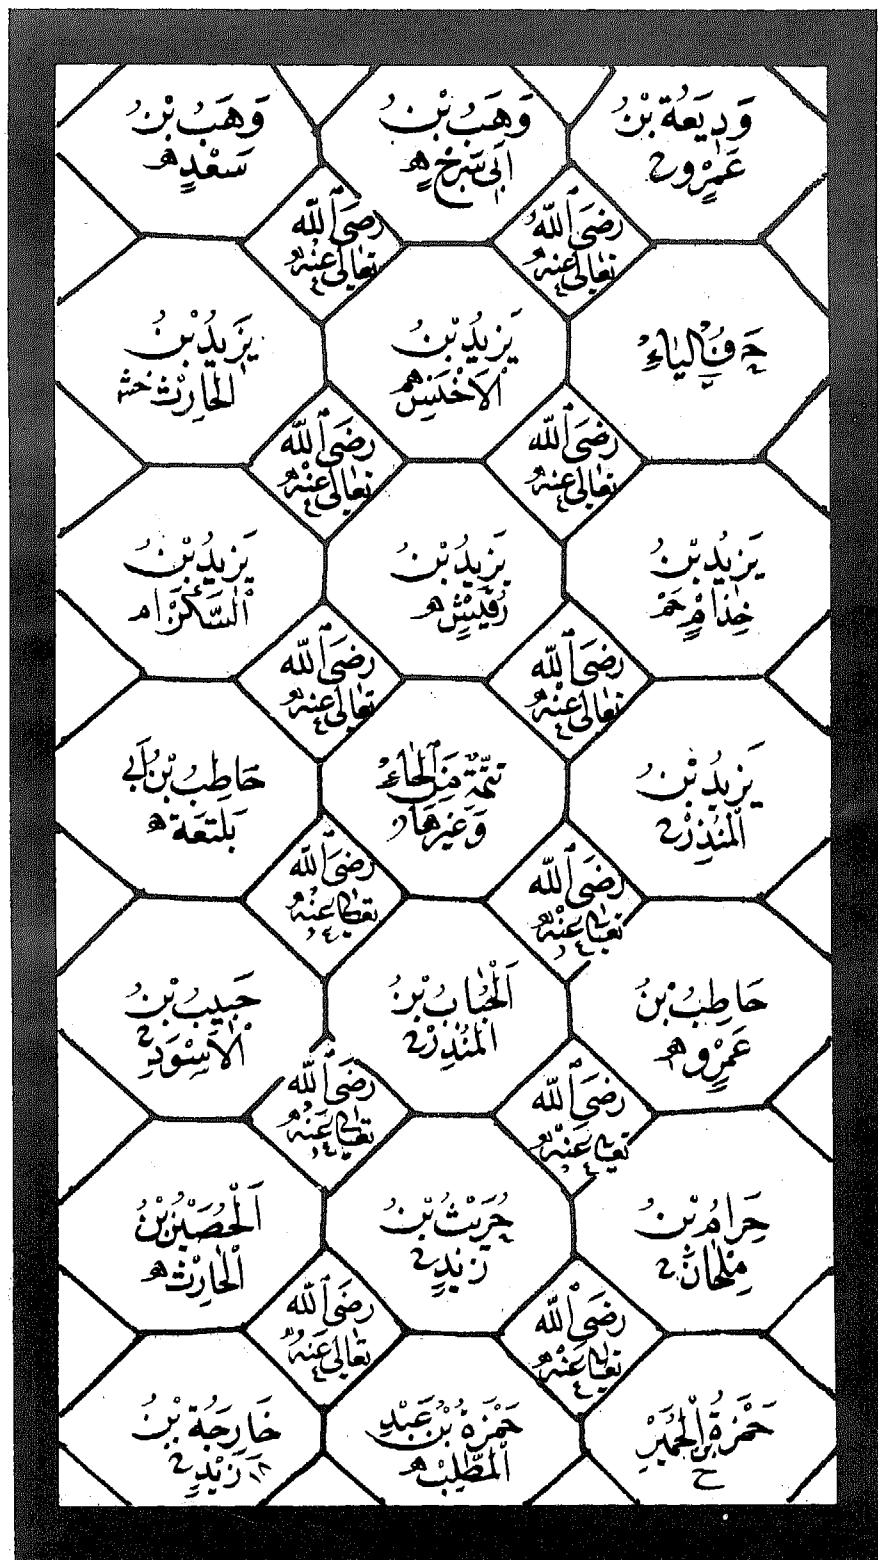 وَدِيعَةُ بْنُ
عَمْرٍو خ
وَهَبُ بْنُ
اَبِیْ سَرْحٍ ه
وَهَبُ بْنُ
سَعْدٍ ه
رَضِىَ اللّٰه
تعَالٰى عَنْهُ
رَضِىَ اللّٰه
تعَالٰى عَنْهُ
حَرفُ الْيَاءِ
يَزِيدُ بْنُ
الْاَخْنَسِ
يَزِيدُ بْنُ
الْحَارِثِ
رَضِىَ اللّٰه
تعَالٰى عَنْهُ
رَضِىَ اللّٰه
تعَالٰى عَنْهُ
يَزِيدُ بْنُ
خِذَامٍ
يَزِيدُ بْنُ
رُقَيْشٍ ه
يَزِيدُ بْنُ
السَّكَنِ
رَضِىَ اللّٰه
تعَالٰى عَنْهُ
رَضِىَ اللّٰه
تعَالٰى عَنْهُ
يَزِيدُ بْنُ
الْمُنْذِرِ خ
تتِمَّةٌ مِّنَ الْحَاءِ
وَغَيْرِهَا
حَاطِبُ بْنُ اَبِى
بَلْتَعَةَ ه
رَضِىَ اللّٰه
تعَالٰى عَنْهُ
رَضِىَ اللّٰه
تعَالٰى عَنْهُ
حَاطِبُ بْنُ
عَمْرٍو ه
اَلْحُبَابُ بْنُ
الْمُنْذِرِ خ
حَبِيبُ بْنُ
الْاَسْوَدِ خ
رَضِىَ اللّٰه
تعَالٰى عَنْهُ
رَضِىَ اللّٰه
تعَالٰى عَنْهُ
حَرَامُ بْنُ
مِلْحَانَ خ
حُرَيْثُ بْنُ
زَيْدٍ خ
اَلْحُصَيْنُ بْنُ
الْحَارِثِ ه
رَضِىَ اللّٰه
تعَالٰى عَنْهُ
رَضِىَ اللّٰه
تعَالٰى عَنْهُ
حَمْزَةُ بْنُ الْحُمَيِّرِ
خ
حَمْزَةُ بْنُ عَبْدِ
الْمُطَّلِبِ ه
خَارِجَةُ بْنُ
زَيْدٍ خ ١٨